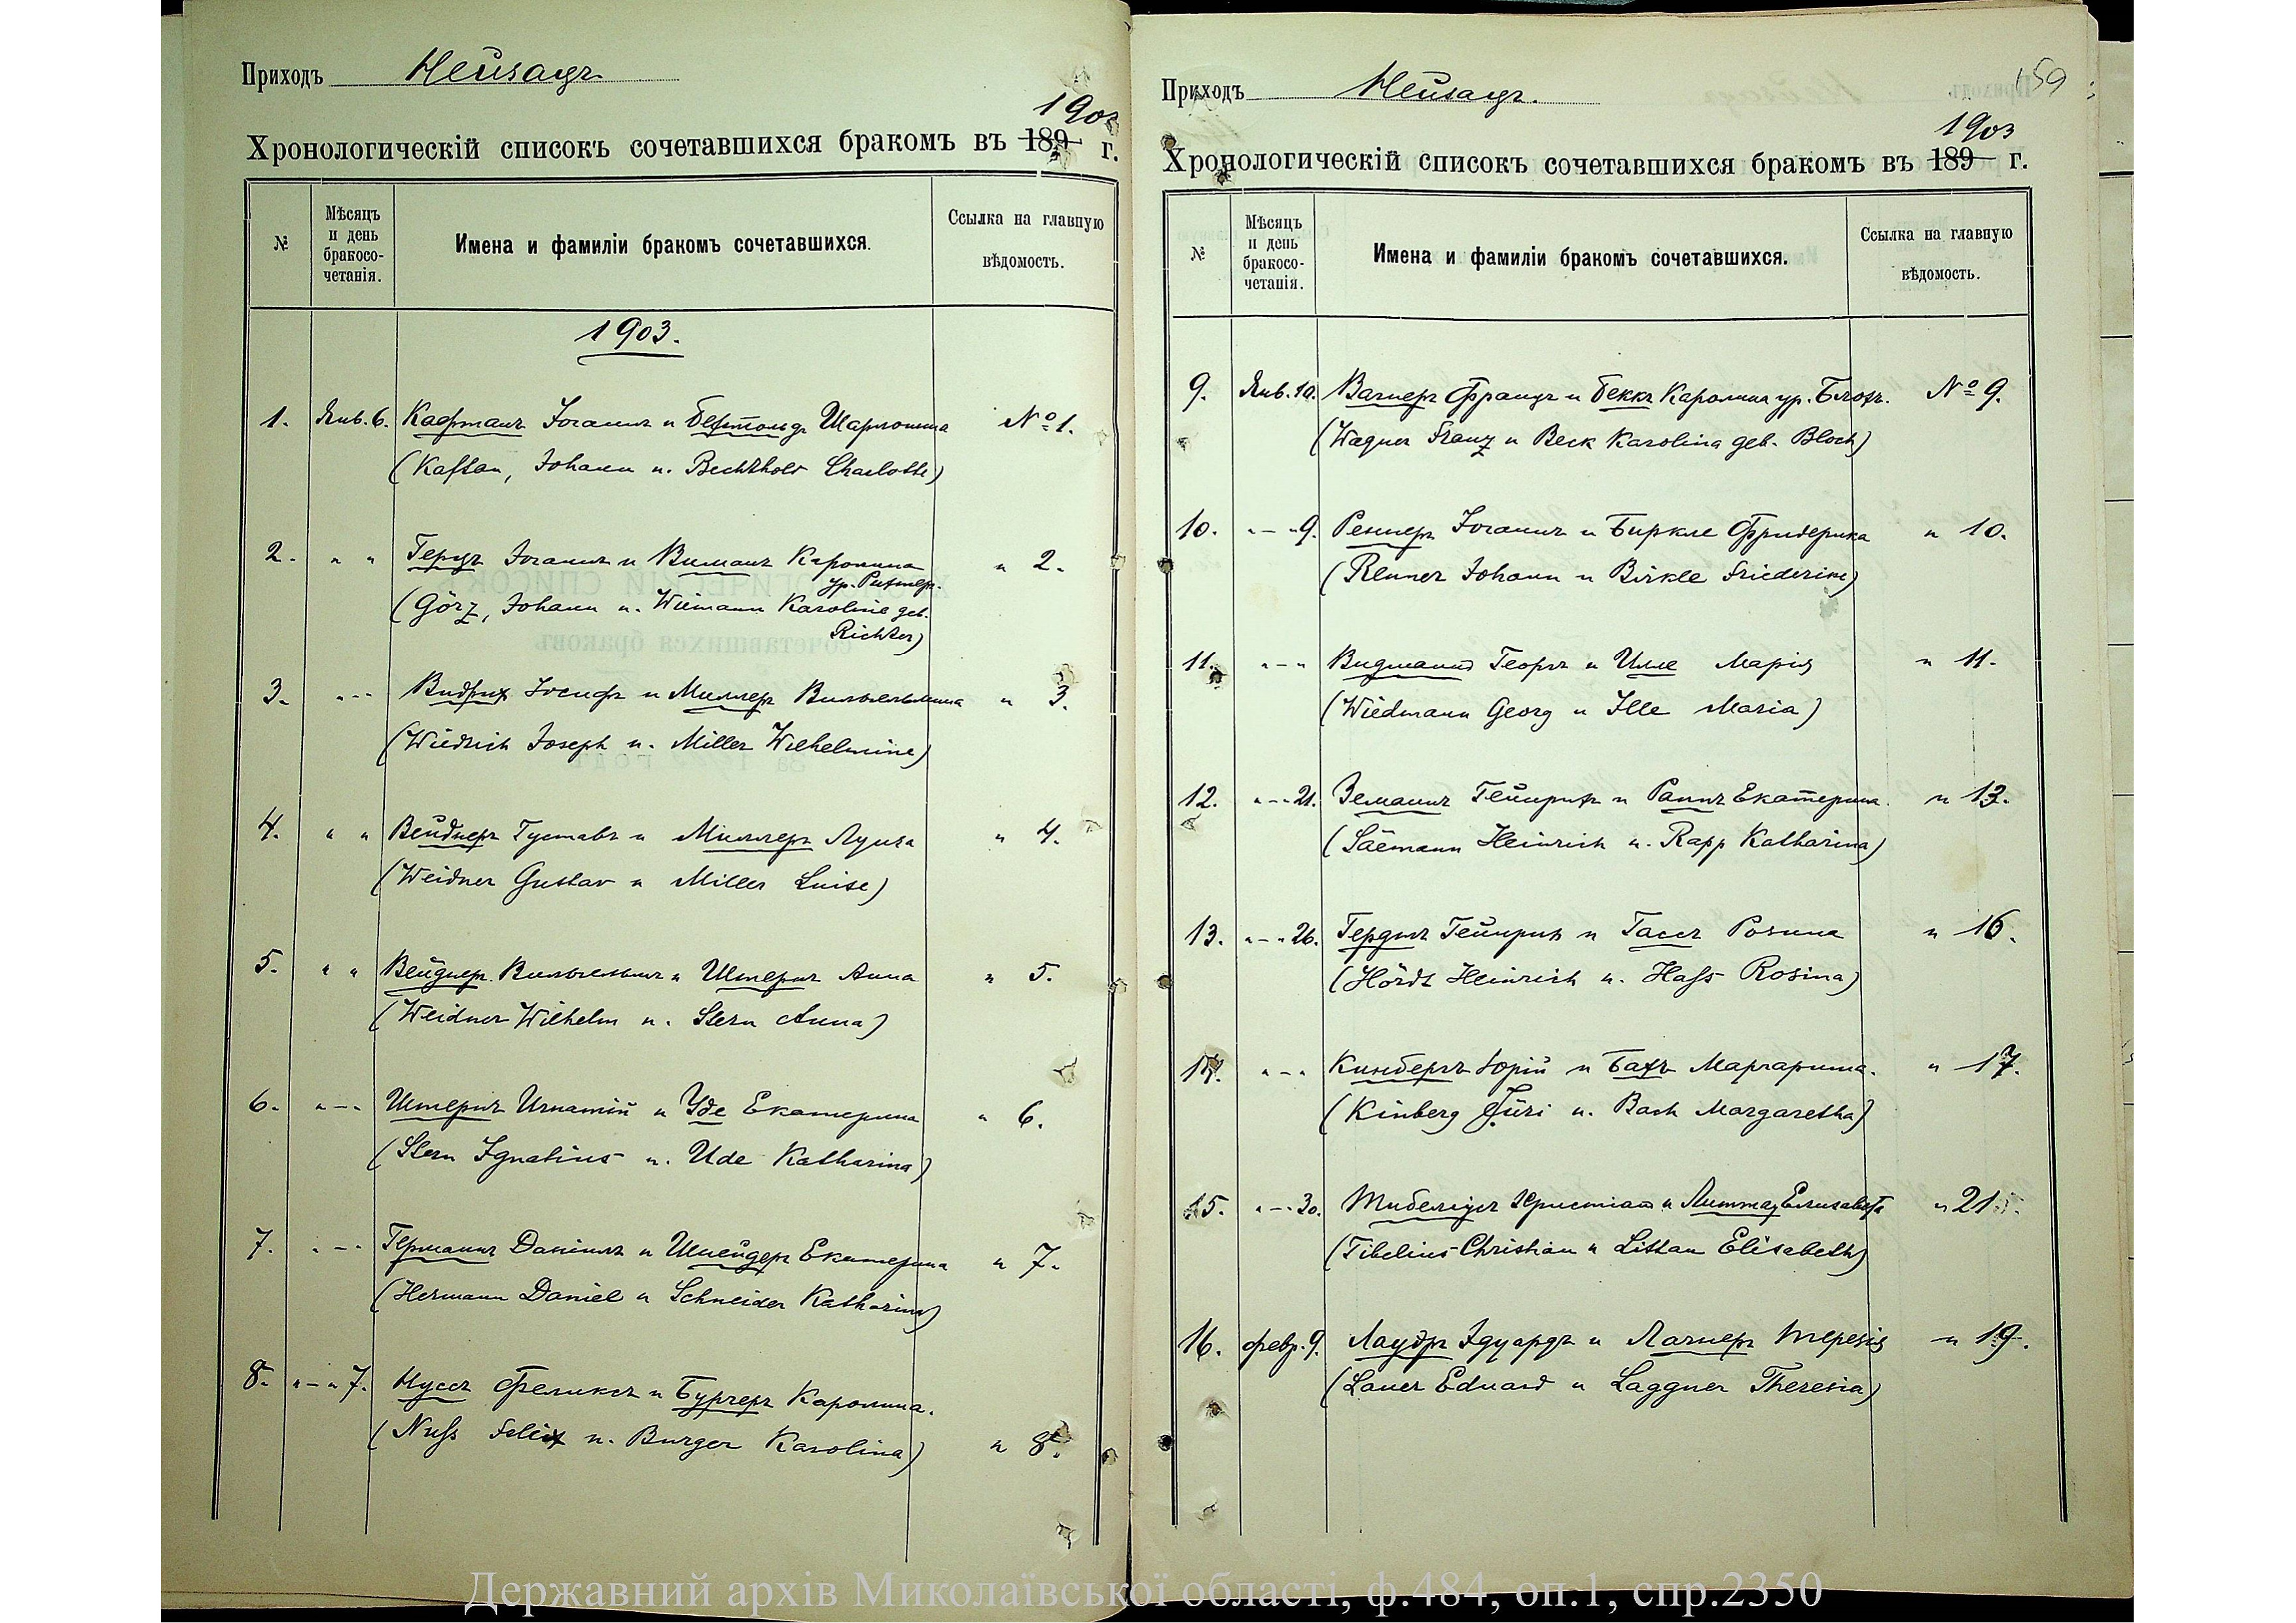 Приходъ Нейзацъ
1903
Хронологическій списокъ сочетавшихся бракомъ въ 189 г.
№ Мѣсяцъ и день бракосо-четанія. Имена и фамиліи бракомъ сочетавшихся. Ссылка на главную вѣдомость.
1903.
1. Янв. 6. Кафтанъ Іоганнъ и Бехтольдъ Шарлотта № 1.
(Kaftan, Johann u. Bechthold Charlotte)
2. " " Герцъ Іоганнъ и Виманъ Каролина " 2.
ур. Рихтеръ.
(Görz, Johann u. Wiemann Karoline geb.
Richter)
3. " - " Видрих Іосифъ и Миллеръ Вильгельмина " 3.
(Wiedrich Joseph u. Miller Wilhelmine)
4. " " Вейднеръ Густавъ и Миллеръ Луиза " 4.
(Weidner Gustav u Miller Luise)
5. " " Вейднеръ Вильгельмъ и Штернъ Анна " 5.
(Weidner Wilhelm u. Stern Anna)
6. " - " Штернъ Игнатій и Уде Екатерина " 6.
(Stern Ignatius u. Ude Katharina)
7. " - " Германнъ Даніилъ и Шнейдеръ Екатерина " 7.
(Hermann Daniel u Schneider Katharina)
8. " - " 7. Нуссъ Феликсъ и Бургеръ Каролина.
(Nuß Felix u. Burger Karolina) " 8.
Приходъ Нейзацъ. 159
1903
Хронологическій списокъ сочетавшихся бракомъ въ 189 г.
№ Мѣсяцъ и день бракосо-четанія. Имена и фамиліи бракомъ сочетавшихся. Ссылка на главную вѣдомость.
9. Янв. 10. Вагнеръ Францъ и Беккъ Каролина ур. Блохъ. № 9.
(Wagner Franz u Beck Karolina geb. Bloch)
10. " - " 9. Реннеръ Іоганнъ и Биркле Фридерика " 10.
(Renner Johann u Birkle Friederike)
11. " - " Видманнъ Георгъ и Илле Марія " 11.
(Wiedmann Georg u Ille Maria)
12. " - " 21. Земаннъ Гейнрихъ и Раппъ Екатерина. " 13.
(Säemann Heinrich u. Rapp Katharina)
13. " - " 26. Гердтъ Гейнрихъ и Гассъ Розина " 16.
(Hördt Heinrich u. Haß Rosina)
14. " - " Кинбергъ Юрій и Бахъ Маргарита. " 17.
(Kinberg Jüri u. Bach Margaretha)
15. " - " 30. Тибеліусъ Христіанъ и Литтау Елизавета " 21.
(Tibelius Christian u Littau Elisabeth)
16. февр. 9. Лауэръ Эдуардъ и Лагнеръ Терезія " 19.
(Lauer Eduard u Laggner Theresia)
Державний архів Миколаївської області, ф.484, оп.1, спр.2350